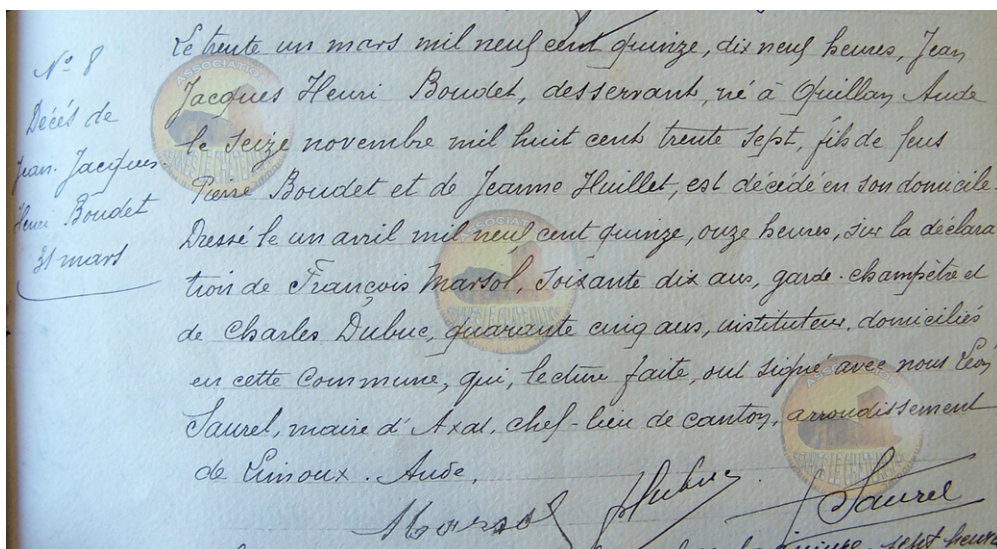 Nº 8
Décès de
Jean. Jacques.
Henri Boudet
31 mars
Le trente un mars mil neuf cent quinze, dix neuf heures, Jean
Jacques Henri Boudet, desservant, né à Quillan Aude
le seize novembre mil huit cent trente sept, fils de feus
Pierre Boudet et de Jeanne Huillet, est décédé en son domicile.
Dressé le un avril mil neuf cent quinze, onze heures, sur la déclara
tion de François Marsol, soixante dix ans, garde-champêtre et
de Charles Dubuc, quarante cinq ans, instituteur, domiciliés
en cette commune, qui, lecture faite, ont signé avec nous Léon
Saurel, maire d'Axat, chef-lieu de canton, arrondissement
de Limoux. Aude.
Marsol Dubuc Saurel
quinze, sept heures